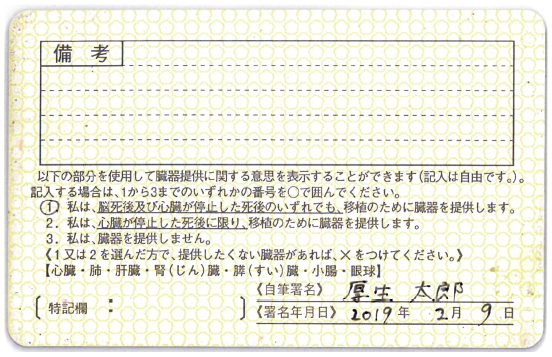 備考
以下の部分を使用して臓器提供に関する意思を表示することができます(記入は自由です。)。
記入する場合は、1から3までのいずれかの番号を〇で囲んでください。
1. 私は、脳死後及び心臓が停止した死後のいずれでも、移植のために臓器を提供します。
2. 私は、心臓が停止した死後に限り、移植のために臓器を提供します。
3. 私は、臓器を提供しません。
《1又は2を選んだ方で、提供したくない臓器があれば、×をつけてください。》
【心臓・肺・肝臓・腎(じん)臓・膵(すい)臓・小腸・眼球】
〔特記欄: 〕
《自筆署名》 厚生 太郎
《署名年月日》 2019年 2月 9日